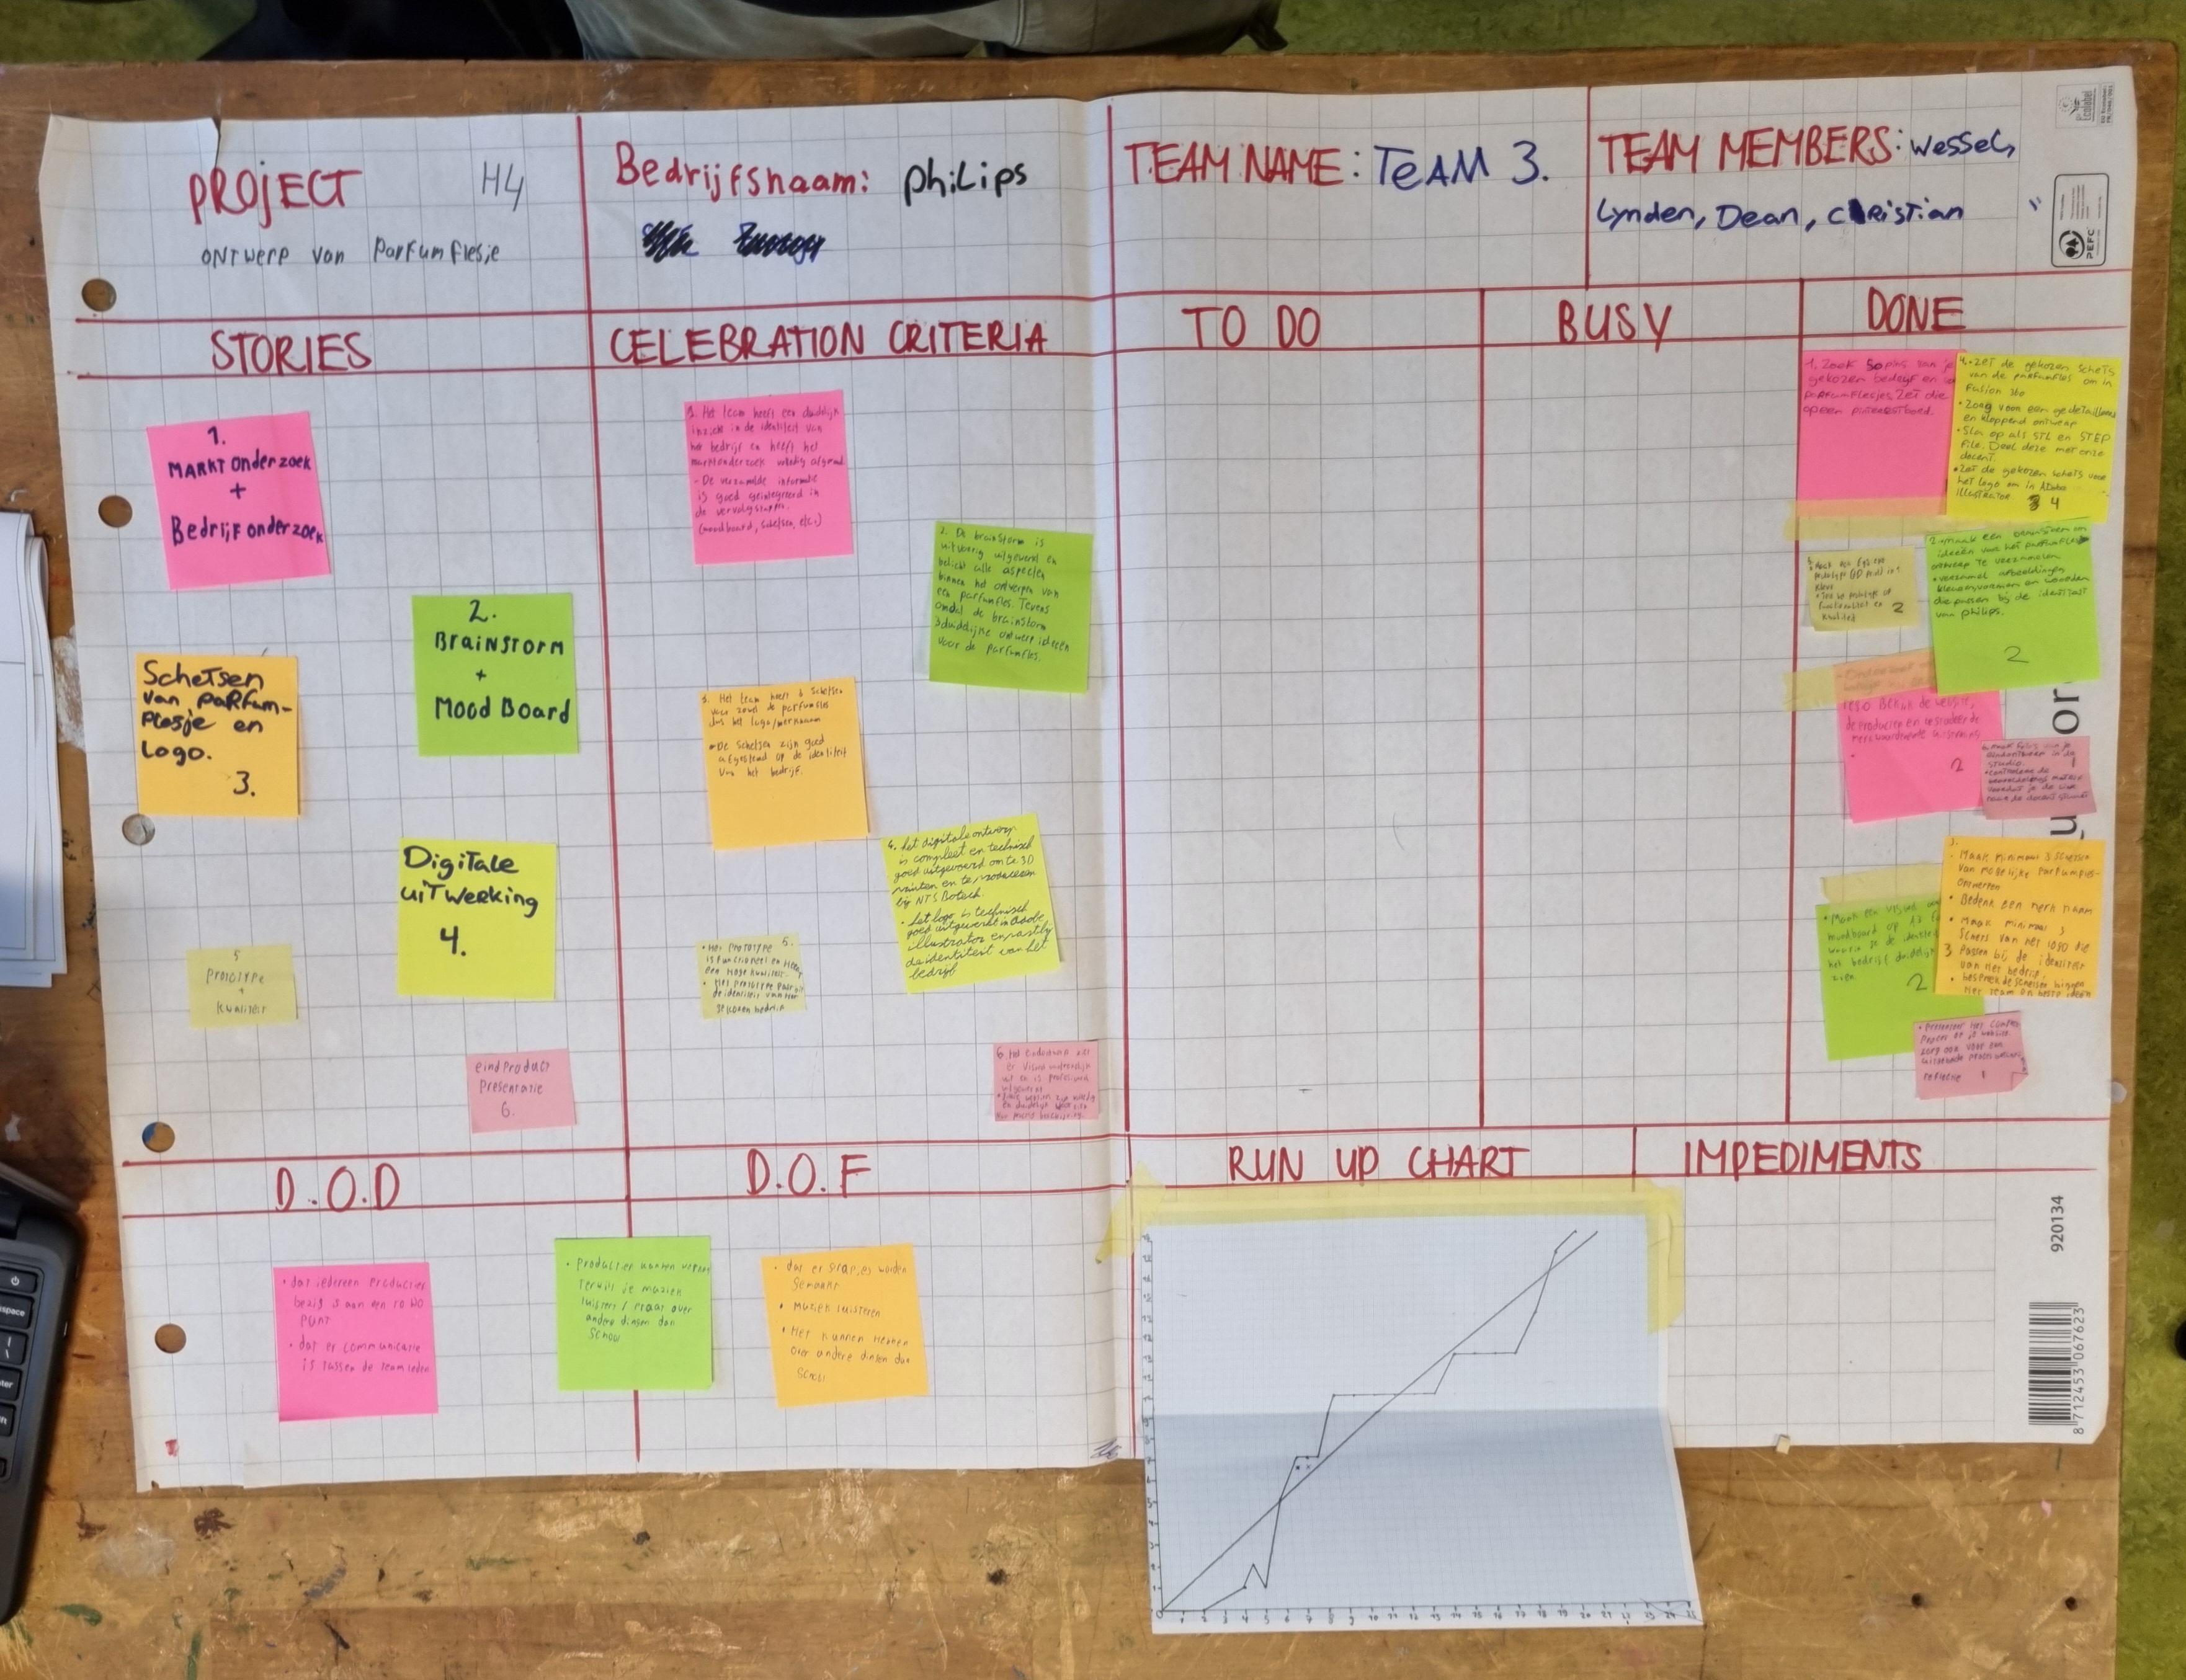 PROJECT H4
ONTWERP VAN PARFUMFLESJE
Bedrijfsnaam: PHILIPS
TEAM NAME: TEAM 3.
TEAM MEMBERS: Wessel,
Lynden, Dean, Christian
STORIES
1.
MARKT onderzoek
+
Bedrijf onderzoek
2.
BRAINSTORM
+
Mood Board
Schetsen
van parfum-
flesje en
Logo.
3.
Digitale
uitwerking
4.
5
Prototype
+
kwaliteit
eindproduct
Presentatie
6.
CELEBRATION CRITERIA
1. Het team heeft een duidelijk
inzicht in de identiteit van
het bedrijf en heeft het
marktonderzoek volledig afgerond
- De verzamelde informatie
is goed geïntegreerd in
de vervolgstappen.
(moodboard, schetsen, etc.)
2. De brainstorm is
uitvoerig uitgevoerd en
belicht alle aspecten
binnen het ontwerpen van
een parfumfles. Tevens
de brainstorm
3 duidelijke ontwerp ideeën
voor de parfumfles.
3. Het team heeft 6 schetsen
voor zowel de parfumfles
als het logo/merknaam
De schetsen zijn goed
afgestemd op de identiteit
van het bedrijf.
4. het digitale ontwerp
is compleet en technisch
goed uitgevoerd om te 3D
printen en te produceren
bij NTS Botech.
• het logo is technisch
goed uitgewerkt in Adobe
illustrator en past bij
de identiteit van het
bedrijf
• Het prototype 5.
is functioneel en heeft
een hoge kwaliteit.
• Het prototype past bij
de identiteit van het
gekozen bedrijf
6. Het eindontwerp ziet
er visueel
uit en is professioneel
uitgewerkt
TO DO
BUSY
DONE
1. Zoek 50 pins van je
gekozen bedrijf en
parfumflesjes. Zet die
op een pinterestboard.
4. • Zet de gekozen schets
van de parfumfles om in
Fusion 360
• Zorg voor een gedetailleerd
en kloppend ontwerp
• Sla op als STL en STEP
file. Deel deze met onze
docent.
• Zet de gekozen schets voor
het logo om in Adobe
illustrator 4
prototype (3D print) in
kleur
• Test het prototype op
functionaliteit en 2
kwaliteit
2. • Maak een brainstorm om
ideeën voor het parfumfles
ontwerp te verzamelen
• verzamel afbeeldingen
kleuren, vormen en woorden
die passen bij de identiteit
van philips.
2
Bekijk de website,
de producten en bestudeer de
2
studio. 1
• controleer de
beoordelings matrix
voordat je de link
naar de docent stuurt
3.
- Maak minimaal 3 schetsen
van mogelijke parfumfles-
ontwerpen
• Bedenk een merk naam
• Maak minimaal 3
schets van het logo die
3 passen bij de identiteit
van het bedrijf.
• bespreek de schetsen binnen
het team en beste ideeën
• Maak een visueel
moodboard op A3
waarin je de identiteit
het bedrijf duidelijk
zien.
2
• Presenteer het
proces op je website.
zorg ook voor een
reflectie 1
D.O.D
• dat iedereen productief
bezig is aan een TO DO
punt
• dat er communicatie
is tussen de teamleden
• Productief kunnen werken
terwijl je muziek
luistert / praat over
andere dingen dan
school
D.O.F
• dat er grapjes worden
gemaakt
• Muziek luisteren
• Het kunnen hebben
over andere dingen dan
school
RUN UP CHART
IMPEDIMENTS
920134
8 712453 067623
PEFC
Ecolabel